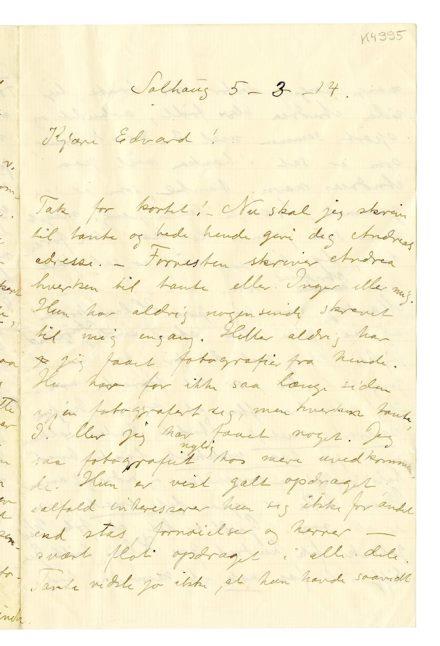 K4995
Solhaug 5-3-14.
Kjære Edvard!
Tak for kortet! - Nu skal jeg skrive
til tante og bede hende give dig Andreas
adresse. - Forresten skriver Andrea
hverken til tante eller Inger eller mig.
Hun har aldrig nogensinde skrevet
til mig engang. Heller aldrig har
jeg faaet fotografier fra hende.
Hun har for ikke saa længe siden
igjen fotografert sig, men hverken tante,
I. eller jeg har faaet noget. Jeg
saa fotografiet nylig hos mere uvedkommen
de. Hun er vist galt opdraget,
ialfald interesserer hun sig ikke for andet
end stas, fornøielser og herrer —
svært flot opdraget i alle dele.
Tante vidste jo ikke, at hun havde saavidt